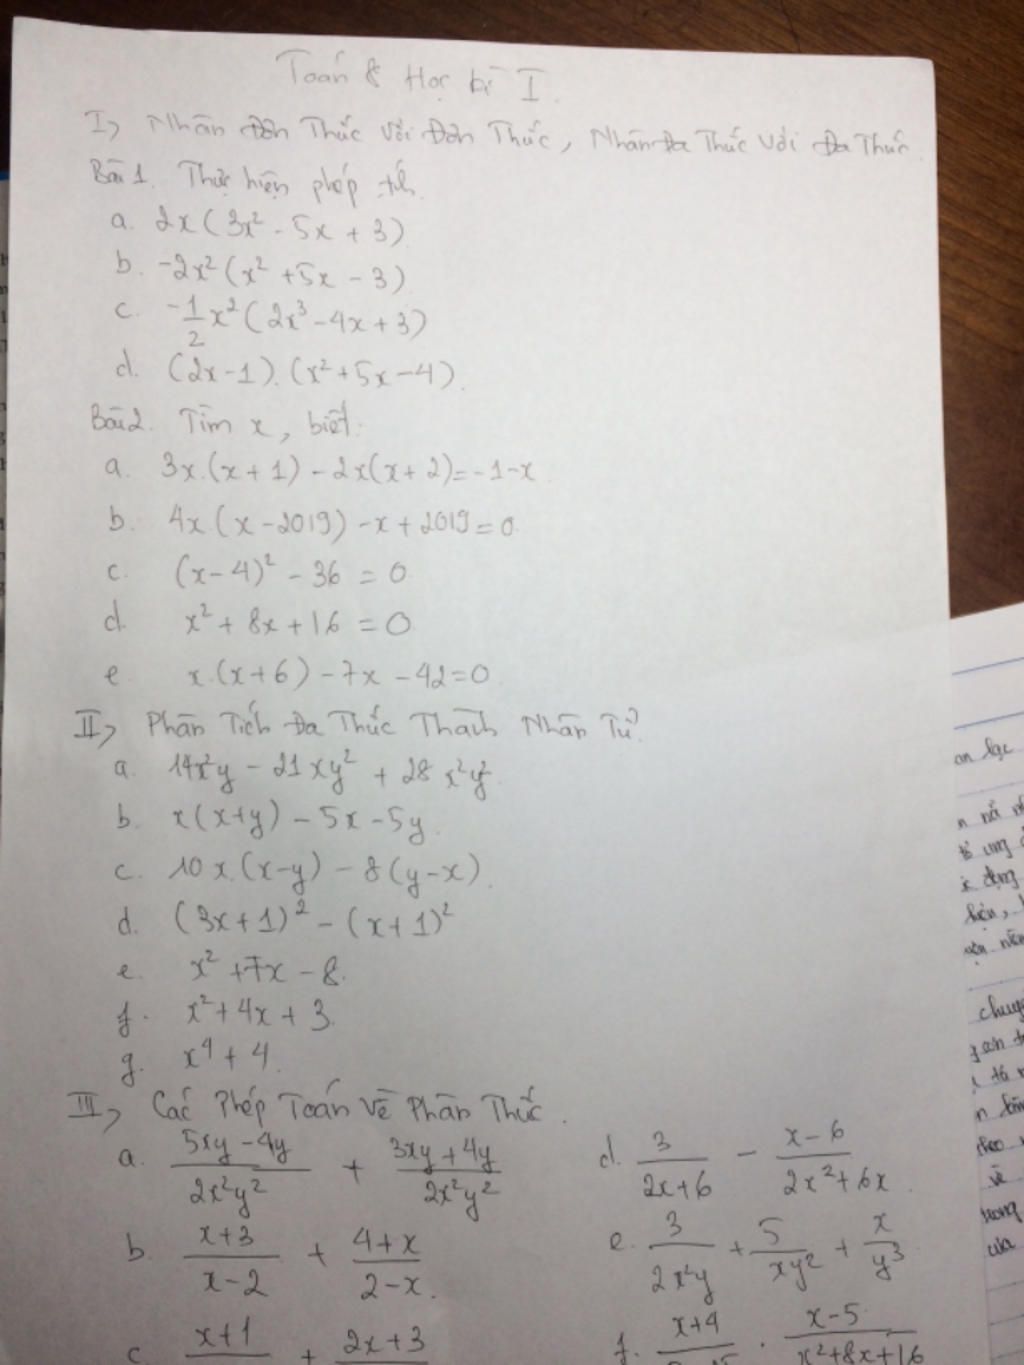 Toán 8 Học kì I.
I, Nhân Đơn Thức với Đơn Thức, Nhân Đa Thức với Đa Thức.
Bài 1. Thực hiện phép tính.
a. 2x(3x² - 5x + 3)
b. -2x²(x² + 5x - 3)
c. -1/2 x²(2x³ - 4x + 3)
d. (2x-1).(x² + 5x - 4).
Bài 2. Tìm x, biết:
a. 3x.(x + 1) - 2x(x + 2) = -1-x.
b. 4x(x-2019) - x + 2019 = 0.
c. (x-4)² - 36 = 0.
d. x² + 8x + 16 = 0.
e. x.(x+6) - 7x - 42 = 0.
II, Phân Tích Đa Thức Thành Nhân Tử.
a. 14x²y - 21xy² + 28x²y².
b. x(x+y) - 5x - 5y.
c. 10x.(x-y) - 8(y-x).
d. (3x+1)² - (x+1)²
e. x² + 7x - 8.
f. x² + 4x + 3.
g. x⁴ + 4.
III, Các Phép Toán Về Phân Thức.
a. (5xy - 4y)/(2x²y²) + (3xy + 4y)/(2x²y²)
b. (x+3)/(x-2) + (4+x)/(2-x).
c. x+1 + 2x+3
d. 3/(2x+6) - (x-6)/(2x²+6x).
e. 3/(2x²y) + 5/(xy²) + x/y³.
f. x+4 . (x-5)/(x²+8x+16)
chuy
của